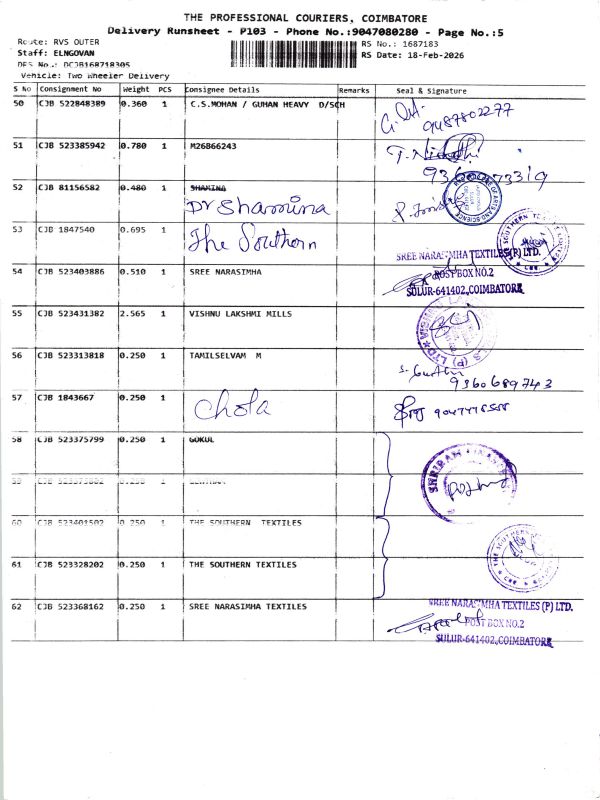 THE PROFESSIONAL COURIERS, COIMBATORE
Delivery Runsheet - P103 - Phone No.:9047080280 - Page No.:5
Route: RVS OUTER
RS No.: 1687183
Staff: ELNGOVAN
RS Date: 18-Feb-2026
DRS No.: DCJB168718305
Vehicle: Two Wheeler Delivery
S No Consignment No Weight PCS Consignee Details Remarks Seal & Signature
50 CJB 522848389 0.360 1 C.S.MOHAN / GUHAN HEAVY D/SCH
9487802277
51 CJB 523385942 0.780 1 M26B66243
52 CJB 81156582 0.480 1 SHAMINA
Dr Shamina
53 CJB 1847540 0.695 1 The Southern
SREE NARASIMHA TEXTILES(P) LTD.
POST BOX NO.2
SULUR-641402,COIMBATORE
54 CJB 523403886 0.510 1 SREE NARASIMHA
55 CJB 523431382 2.565 1 VISHNU LAKSHMI MILLS
56 CJB 523313818 0.250 1 TAMILSELVAM M
9360689743
57 CJB 1843667 0.250 1 Chola
58 CJB 523375799 0.250 1 GOKUL
SHRIRAM
59 0.250 1
60 CJB 523401502 0.250 1 THE SOUTHERN TEXTILES
61 CJB 523328202 0.250 1 THE SOUTHERN TEXTILES
62 CJB 523368162 0.250 1 SREE NARASIMHA TEXTILES
SREE NARASIMHA TEXTILES (P) LTD.
POST BOX NO.2
SULUR-641402,COIMBATORE